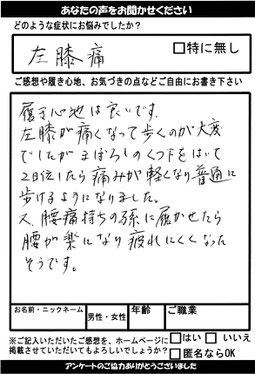 あなたの声をお聞かせください
どのような症状にお悩みでしたか?
左膝痛
□特に無し
ご感想や履き心地、お気づきの点などご自由にお書き下さい
履き心地は良いです。
左膝が痛くなって歩くのが大変
でしたがまぼろしのくつ下をはいて
2日位したら痛みが軽くなり普通に
歩けるようになりました。
又、腰痛持ちの孫に履かせたら
腰が楽になり疲れにくくなった
そうです。
お名前・ニックネーム
男性・女性
年齢
ご職業
※ご記入いただいたご感想を、ホームページに
掲載させていただいてもよろしいでしょうか?
□はい □いいえ
□匿名ならOK
アンケートのご協力ありがとうございました